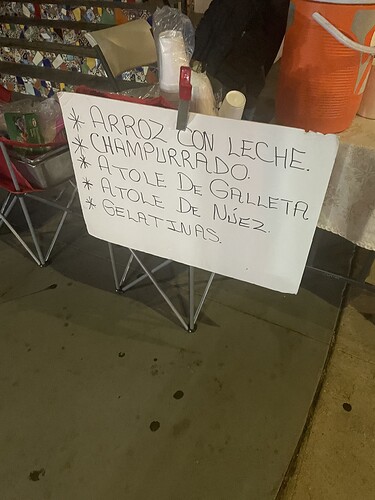 * ARROZ CON LECHE.
* CHAMPURRADO.
* ATOLE DE GALLETA
* ATOLE DE NUEZ.
* GELATINAS.